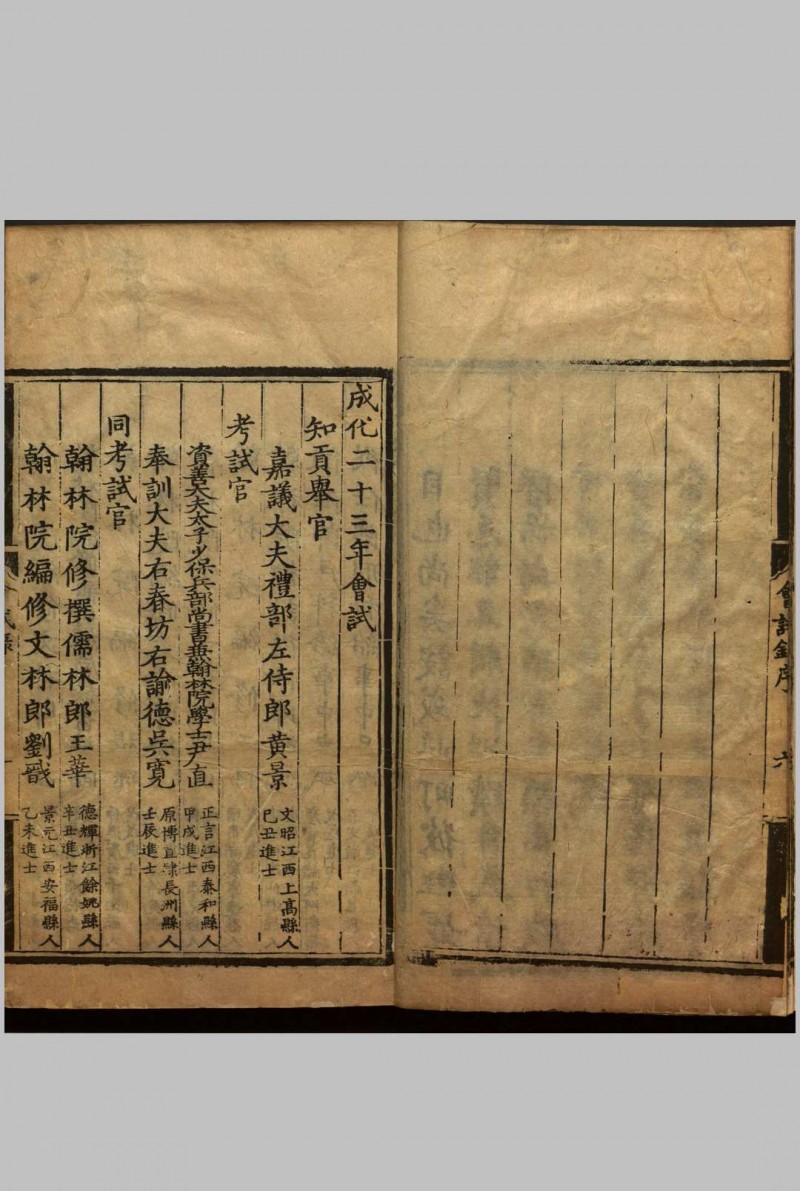 會試錄序
六
成化二十三年會試
知貢舉官
嘉議大夫禮部左侍郎黄景
文昭江西上高縣人
己丑進士
考試官
資善大夫太子少保兵部尚書兼翰林院學士尹直
正言江西泰和縣人
甲戌進士
奉訓大夫右春坊右諭德吳寬
原博直隸長洲縣人
壬辰進士
同考試官
翰林院修撰儒林郎王華
德輝浙江餘姚縣人
辛丑進士
翰林院編修文林郎劉戩
景元江西安福縣人
乙未進士